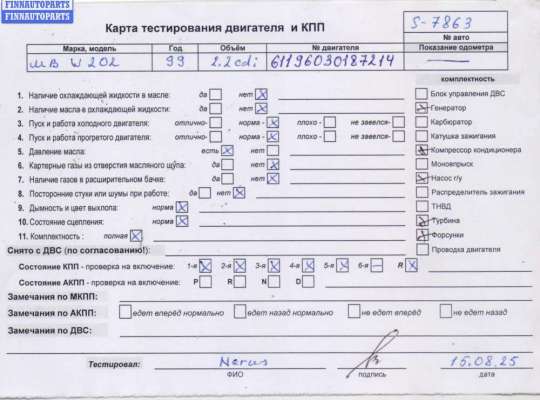 FINNAUTOPARTS
FINNAUTOPARTS
Карта тестирования двигателя и КПП
S-7863
№ авто
Марка, модель Год Объём № двигателя Показание одометра
MB W202 99 2.2cdi 61196030187214 —
комплектность
1. Наличие охлаждающей жидкости в масле: да нет
Блок управления ДВС
2. Наличие масла в охлаждающей жидкости: да нет
Генератор
3. Пуск и работа холодного двигателя: отлично- норма - плохо - не завелся-
Карбюратор
4. Пуск и работа прогретого двигателя: отлично- норма - плохо - не завелся-
Катушка зажигания
5. Давление масла: есть нет
Компрессор кондиционера
6. Картерные газы из отверстия масляного щупа: да нет
Моновпрыск
7. Наличие газов в расширительном бачке: да нет
Насос г/у
8. Посторонние стуки или шумы при работе: да нет
Распределитель зажигания
9. Дымность и цвет выхлопа: норма
ТНВД
10. Состояние сцепления: норма
Турбина
11. Комплектность : полная
Форсунки
Снято с ДВС (по согласованию!):
Проводка двигателя
Состояние КПП - проверка на включение: 1-я 2-я 3-я 4-я 5-я 6-я R
Состояние АКПП - проверка на включение: P R N D
Замечания по МКПП:
Замечания по АКПП: едет вперёд нормально едет назад нормально не едет вперёд не едет назад
Замечания по ДВС:
Тестировал: 15.08.25
ФИО подпись дата